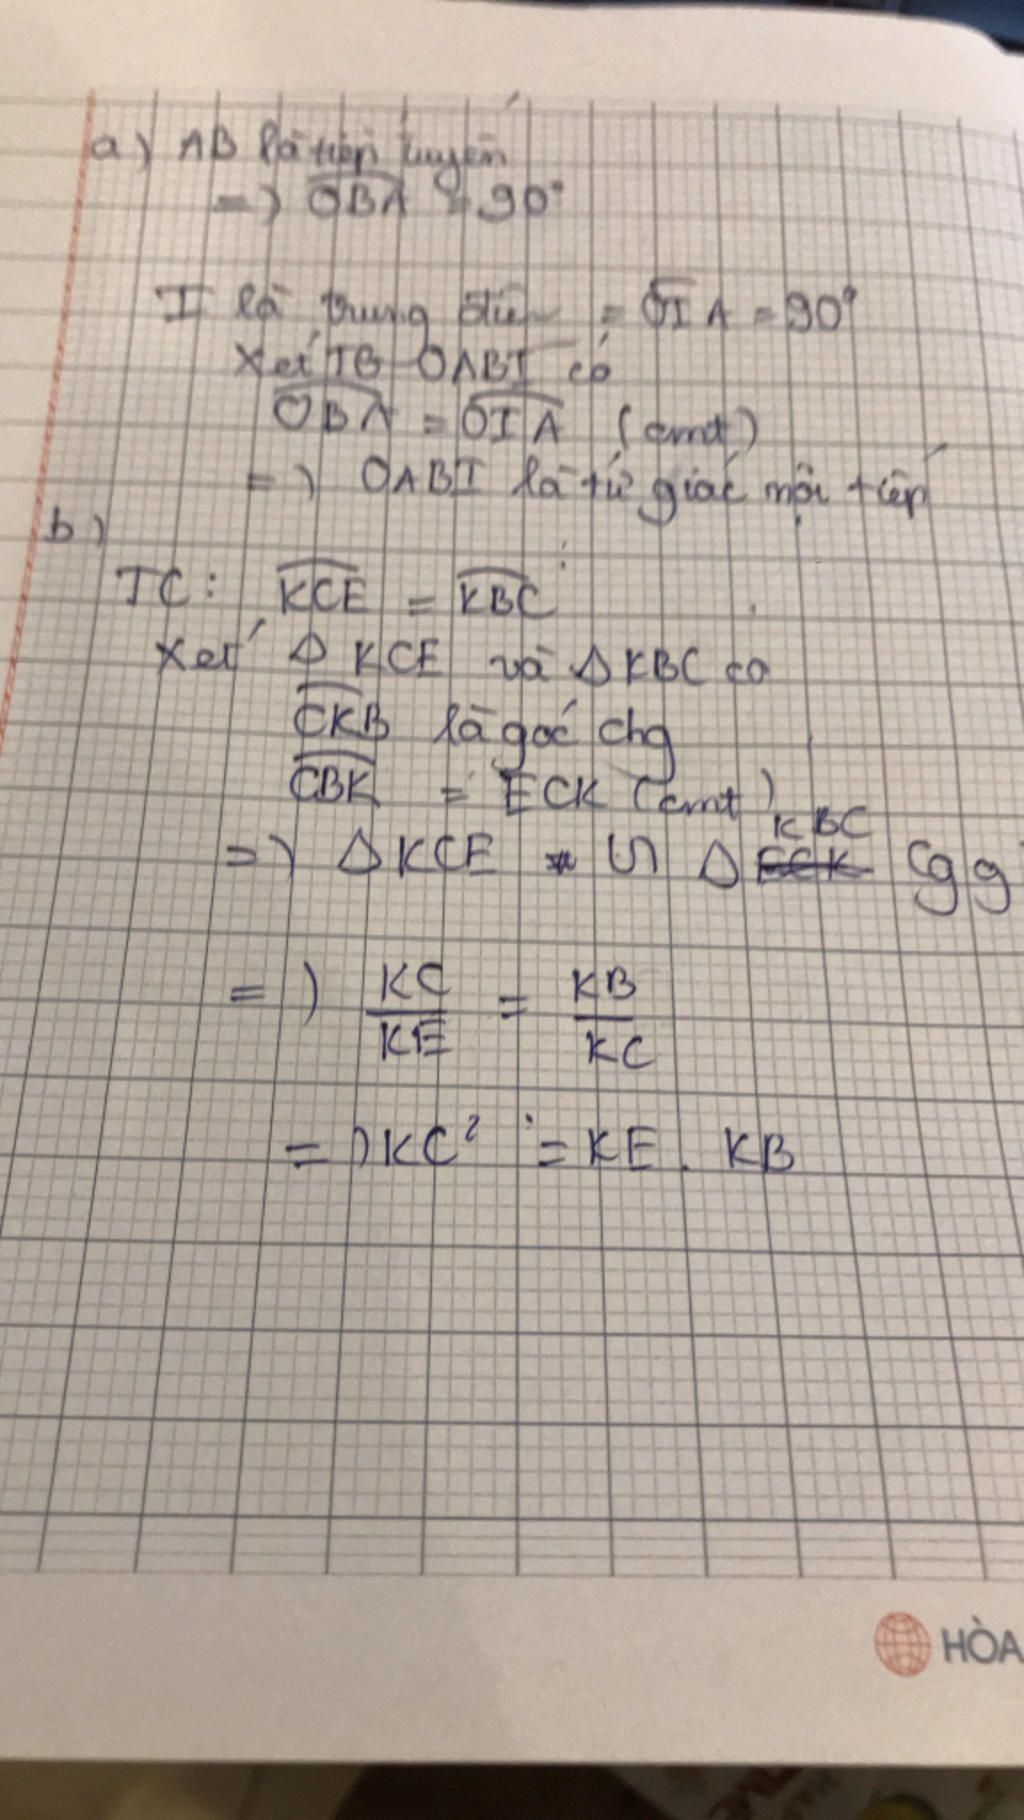 a) AB là tiếp tuyến
=) OBA = 90°
I là trung điểm = OIA = 90°
Xét TG OABI có
OBA = OIA (cmt)
=) OABI là tứ giác nội tiếp
b)
TC: KCE = KBC
Xét Δ KCE và Δ KBC co
CKB là góc chg
CBK = ECK (cmt)
KBC
=) Δ KCE ∽ Δ ECK (g g
=) KC/KE = KB/KC
=) KC² = KE . KB
HÒA